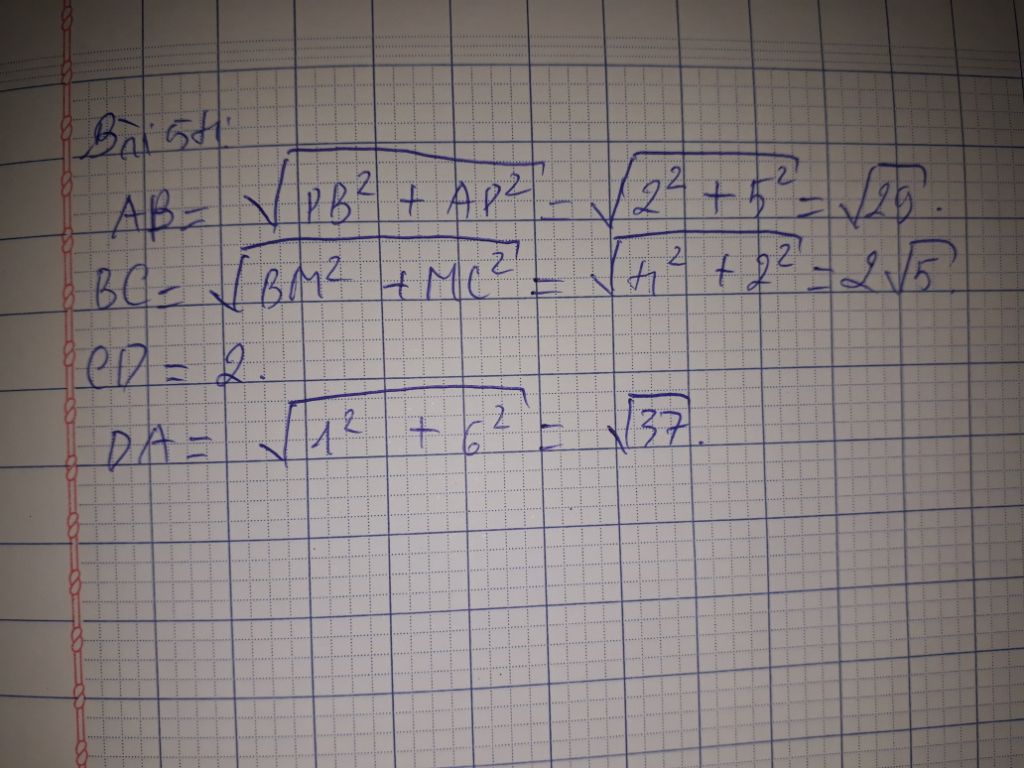 Bài 54:
AB = √(PB² + AP²) = √(2² + 5²) = √29.
BC = √(BM² + MC²) = √(4² + 2²) = 2√5.
CD = 2.
DA = √(1² + 6²) = √37.